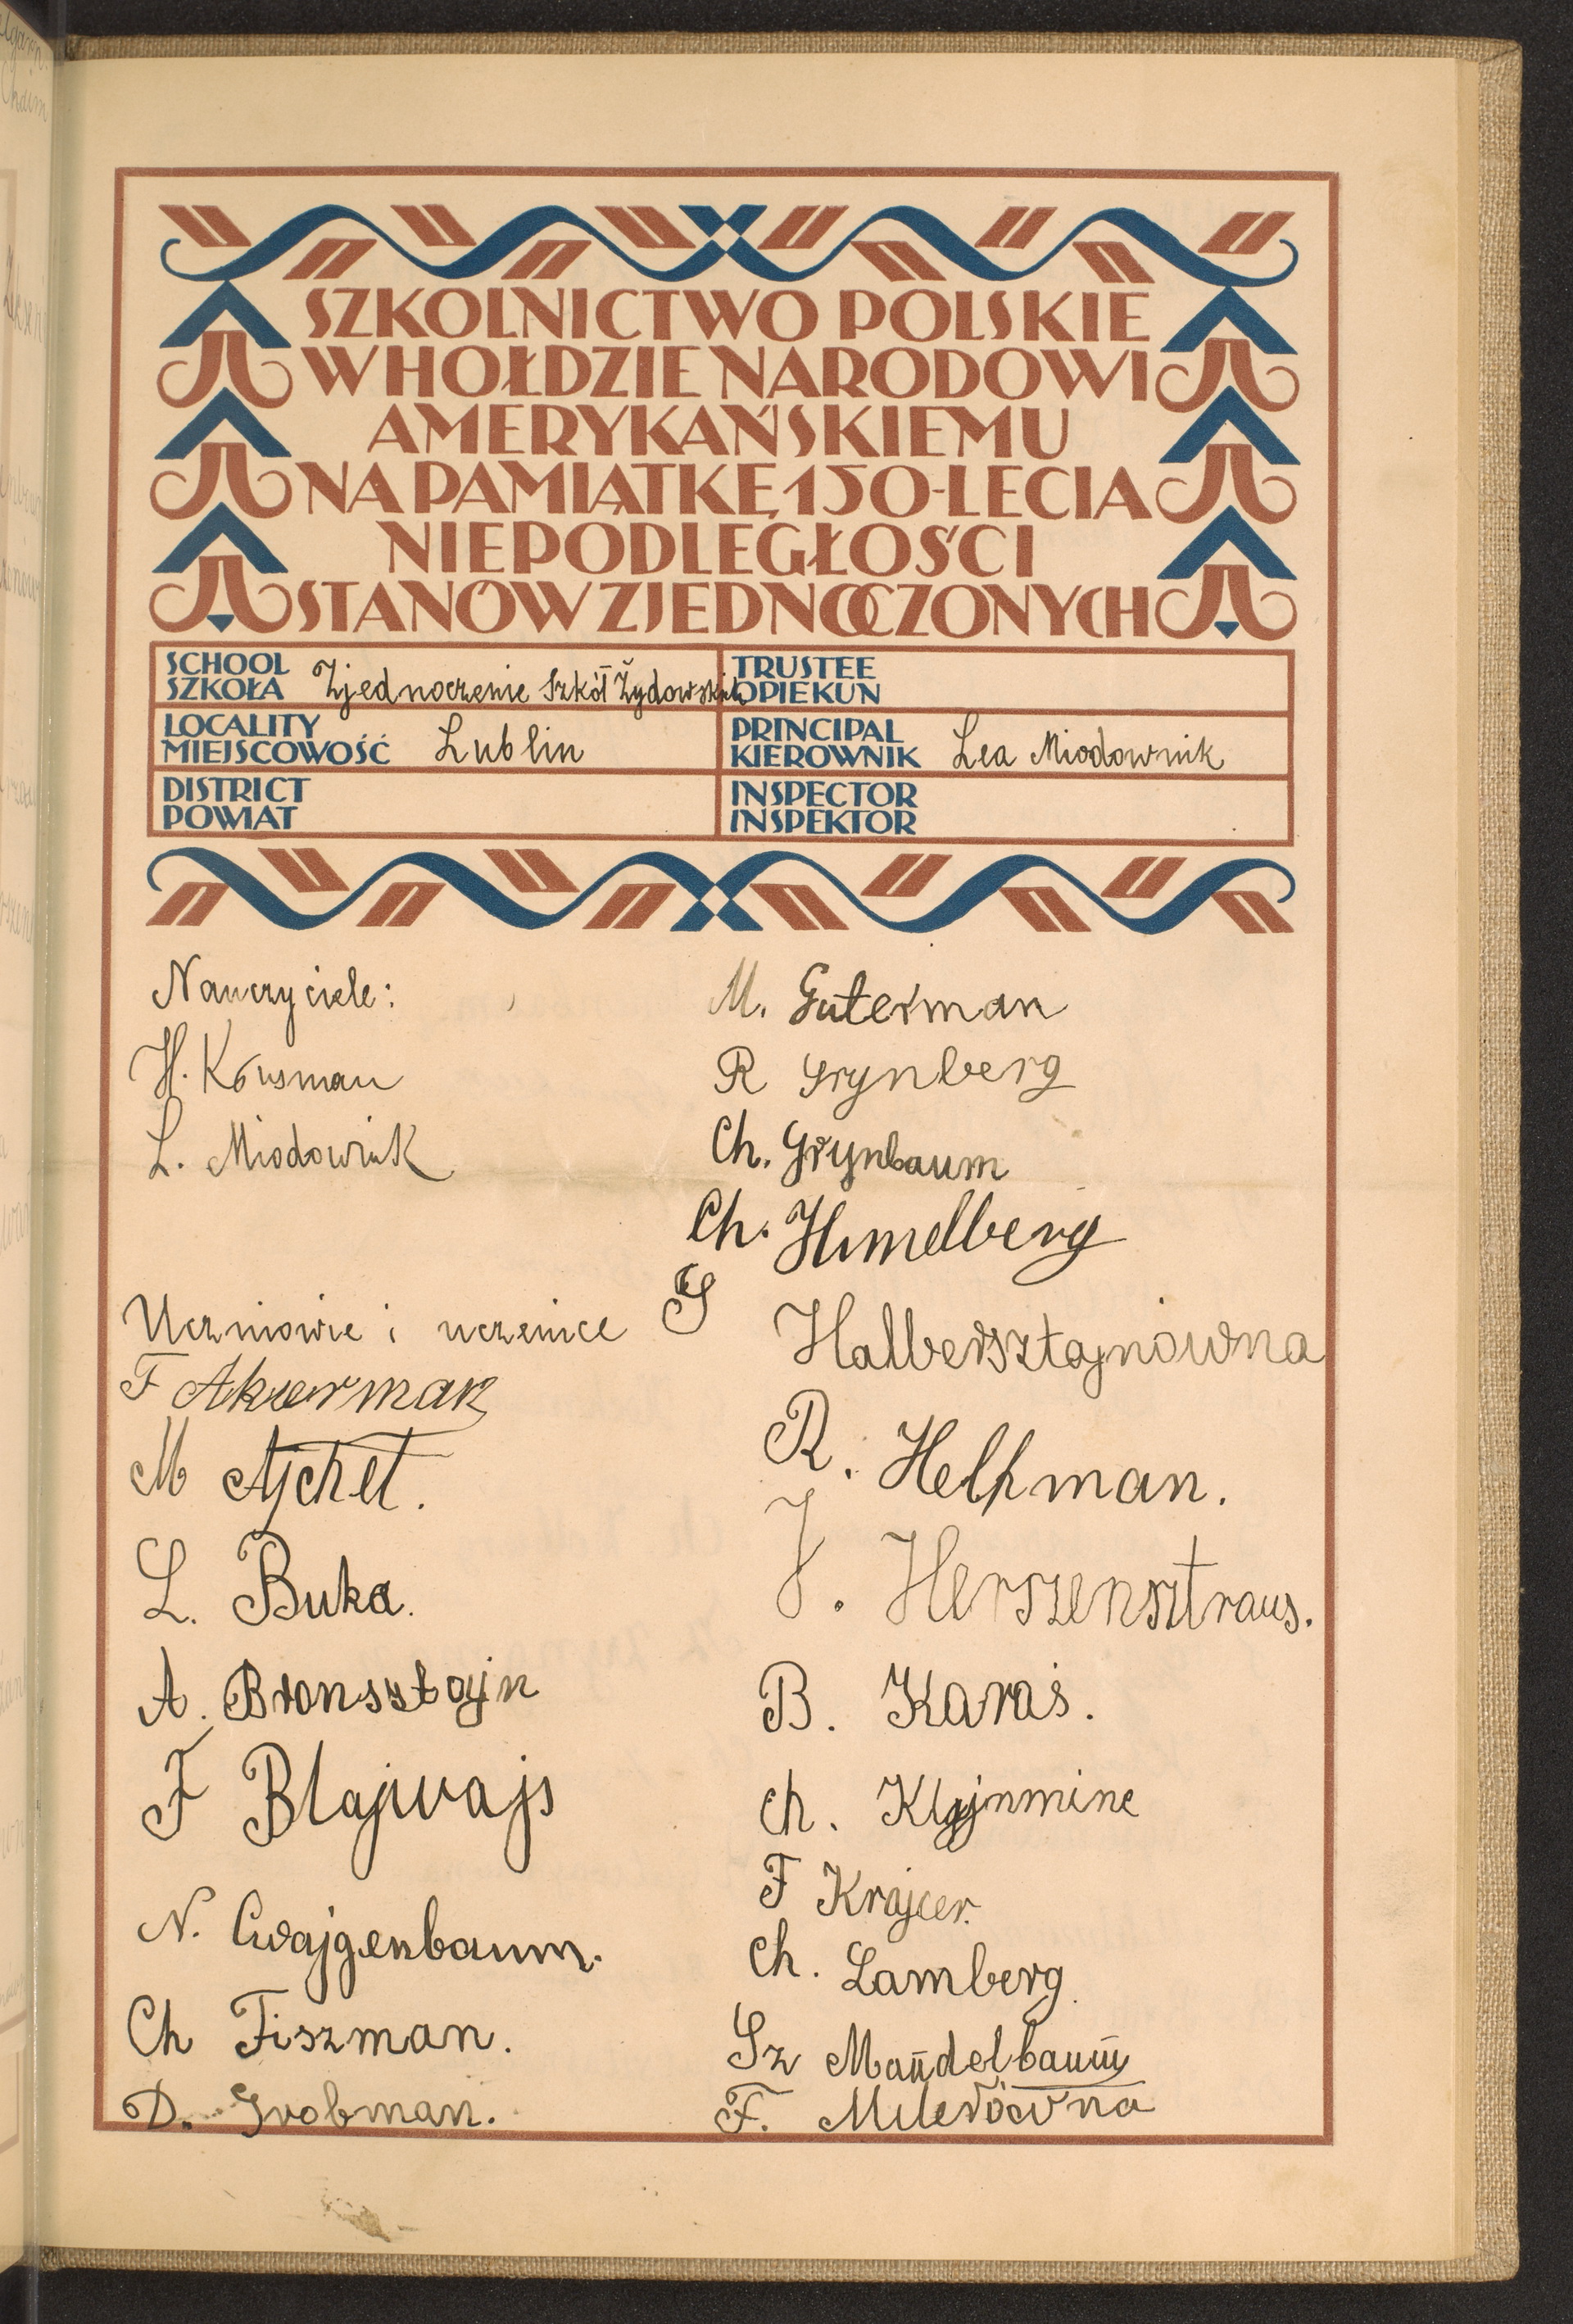 SZKOLNICTWO POLSKIE
W HOŁDZIE NARODOWI
AMERYKAŃSKIEMU
NA PAMIĄTKĘ 150-LECIA
NIEPODLEGŁOŚCI
STANÓW ZJEDNOCZONYCH
SCHOOL
SZKOŁA Zjednoczenie Szkół Żydowskich
TRUSTEE
OPIEKUN
LOCALITY
MIEJSCOWOŚĆ Lublin
PRINCIPAL
KIEROWNIK Lea Miodownik
DISTRICT
POWIAT
INSPECTOR
INSPEKTOR
Nauczyciele:
H.
L. Miodownik
Uczniowie i uczenice
F Akierman
M Ajchel.
L. Buka.
A. Bronsztajn
F Blajwajs
N. Cwajgenbaum.
Ch Fiszman.
D. Grobman.
M. Guterman
R Grynberg
Ch. Grynbaum
Ch. Himelberg
S Halbersztajnówna
R. Helfman.
J. Herszensztraus.
B. Karaś.
Ch. Klajnminc
F Krajcer.
Ch. Lamberg
Sz Mandelbaum
F. Milerówna